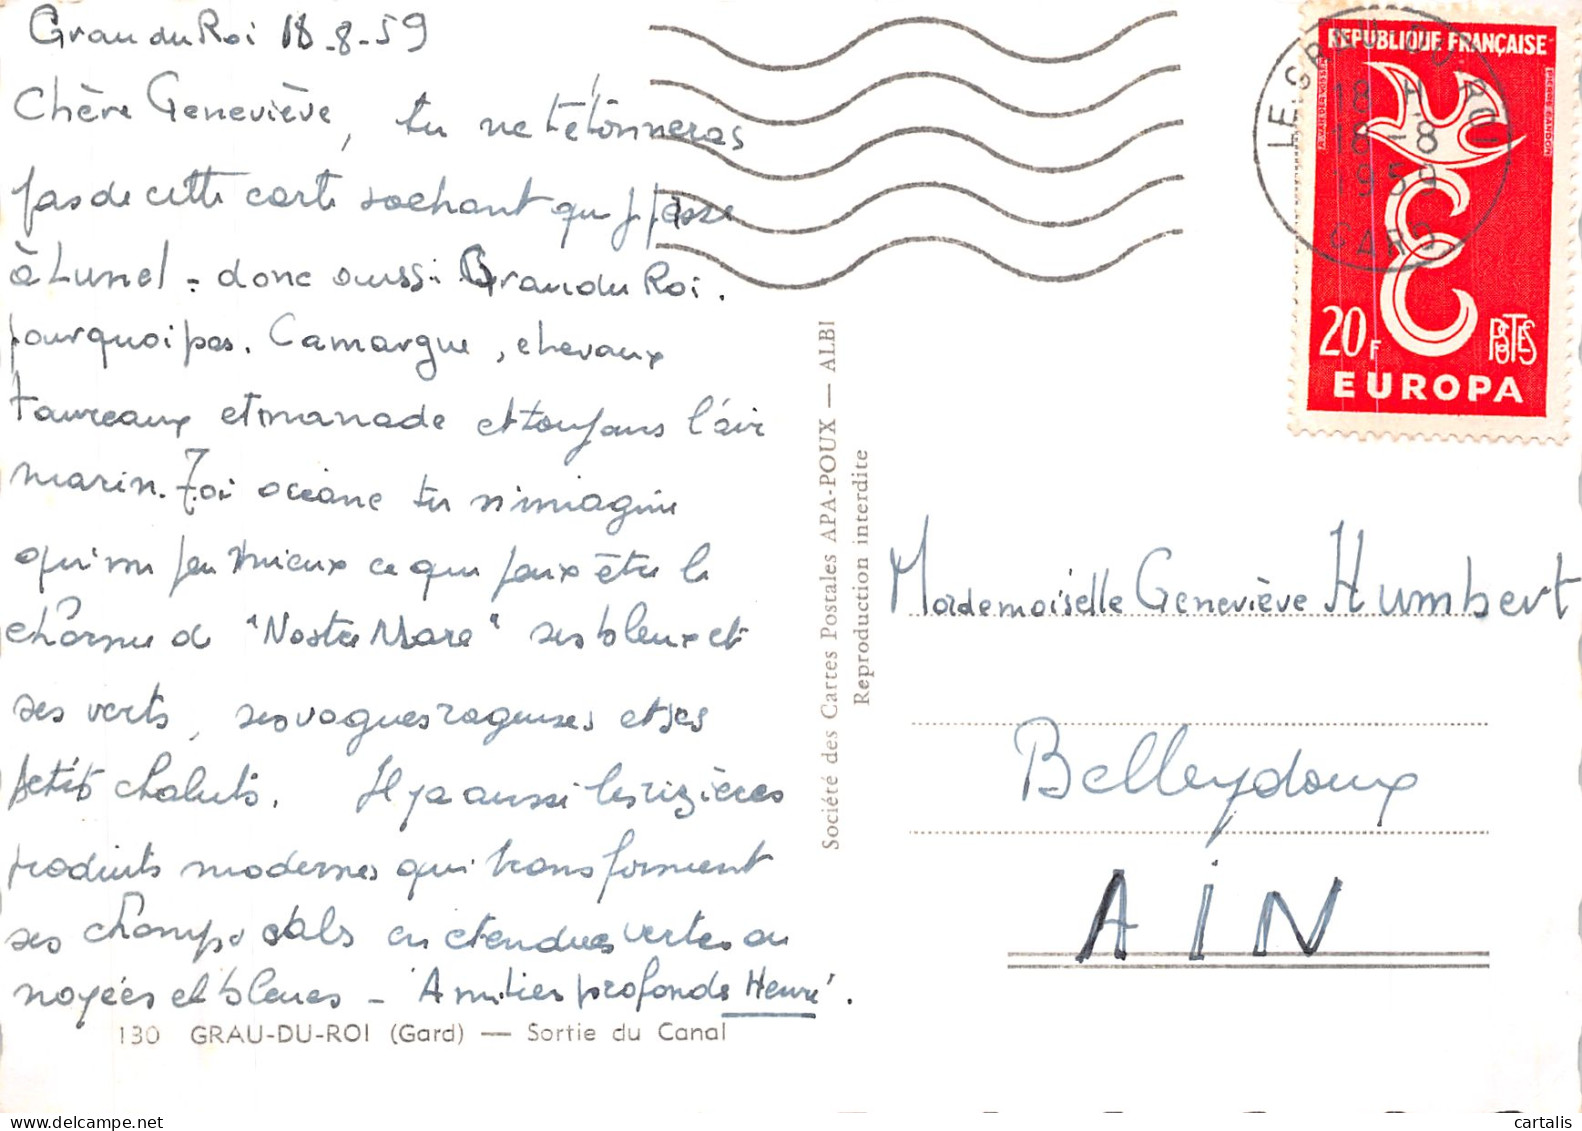 Grau du Roi 18-8-59
Chère Geneviève, tu ne t'étonneras
pas de cette carte sachant que je passe
à Lunel - donc aussi Grau du Roi.
pourquoi pas. Camargue, chevaux
taureaux et manade et toujours l'air
marin. Toi océane tu n'imagine
qu'un peu mieux ce que peux être le
charme de "Nostre Mare" ses bleux et
ses verts, ses vagues rageuses et ses
petits chaluts. Il y a aussi les rizières
produits modernes qui transforment
ses champs en étendues vertes ou
noyées et bleues - Amitiés profondes Henri.
130 GRAU-DU-ROI (Gard) — Sortie du Canal
Société des Cartes Postales APA-POUX — ALBI
Reproduction interdite
REPUBLIQUE FRANÇAISE
PIERRE GANDON
20F
POSTES
EUROPA
LE GRAU-DU-ROI
18 H
18-8
1959
GARD
Mademoiselle Geneviève Humbert
Belleydoux
AIN
cartalis